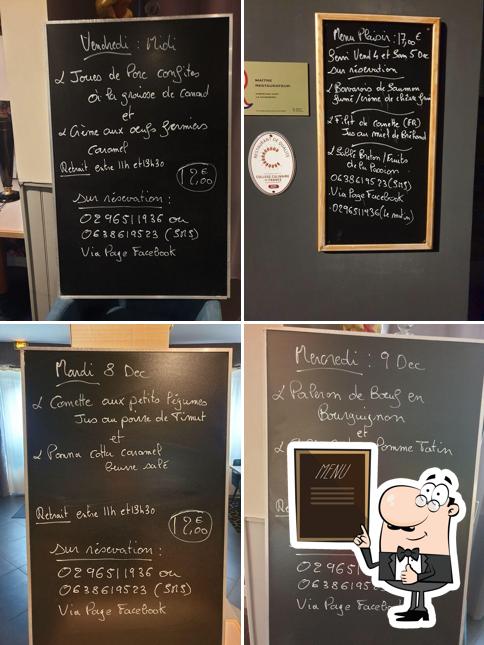 Vendredi : Midi
L Joues de Porc confites
à la graisse de canard
et
L Crème aux oeufs fermiers
caramel
Retrait entre 11h et 13h30
12,00 €
Sur réservation :
0296511936 ou
0638619523 (SMS)
Via Page Facebook
MAITRE
RESTAURATEUR
RESTAURANT DE QUALITÉ
COLLÈGE CULINAIRE
DE FRANCE
Menu Plaisir : 17,00 €
Vend 4 et Sam 5 Dec
Sur réservation
L Bavarois de Saumon
fumé/crème de chèvre
L Filet de canette (FR)
Jus au miel de Bréhand
L Sablé Breton/Fruits
de la Passion
0638619523 (SMS)
Via Page Facebook
0296511936 (le matin)
Mardi 8 Dec
L Canette aux petits légumes
Jus au poivre de Timut
et
L Panna cotta caramel
beurre salé
Retrait entre 11h et 13h30
12,00 €
Sur réservation :
0296511936 ou
0638619523 (SMS)
Via Page Facebook
Mercredi : 9 Dec
L Paleron de Boeuf en
Bourguignon
et
Pomme Tatin
MENU
Re
02965
063861
Via Page Faceb